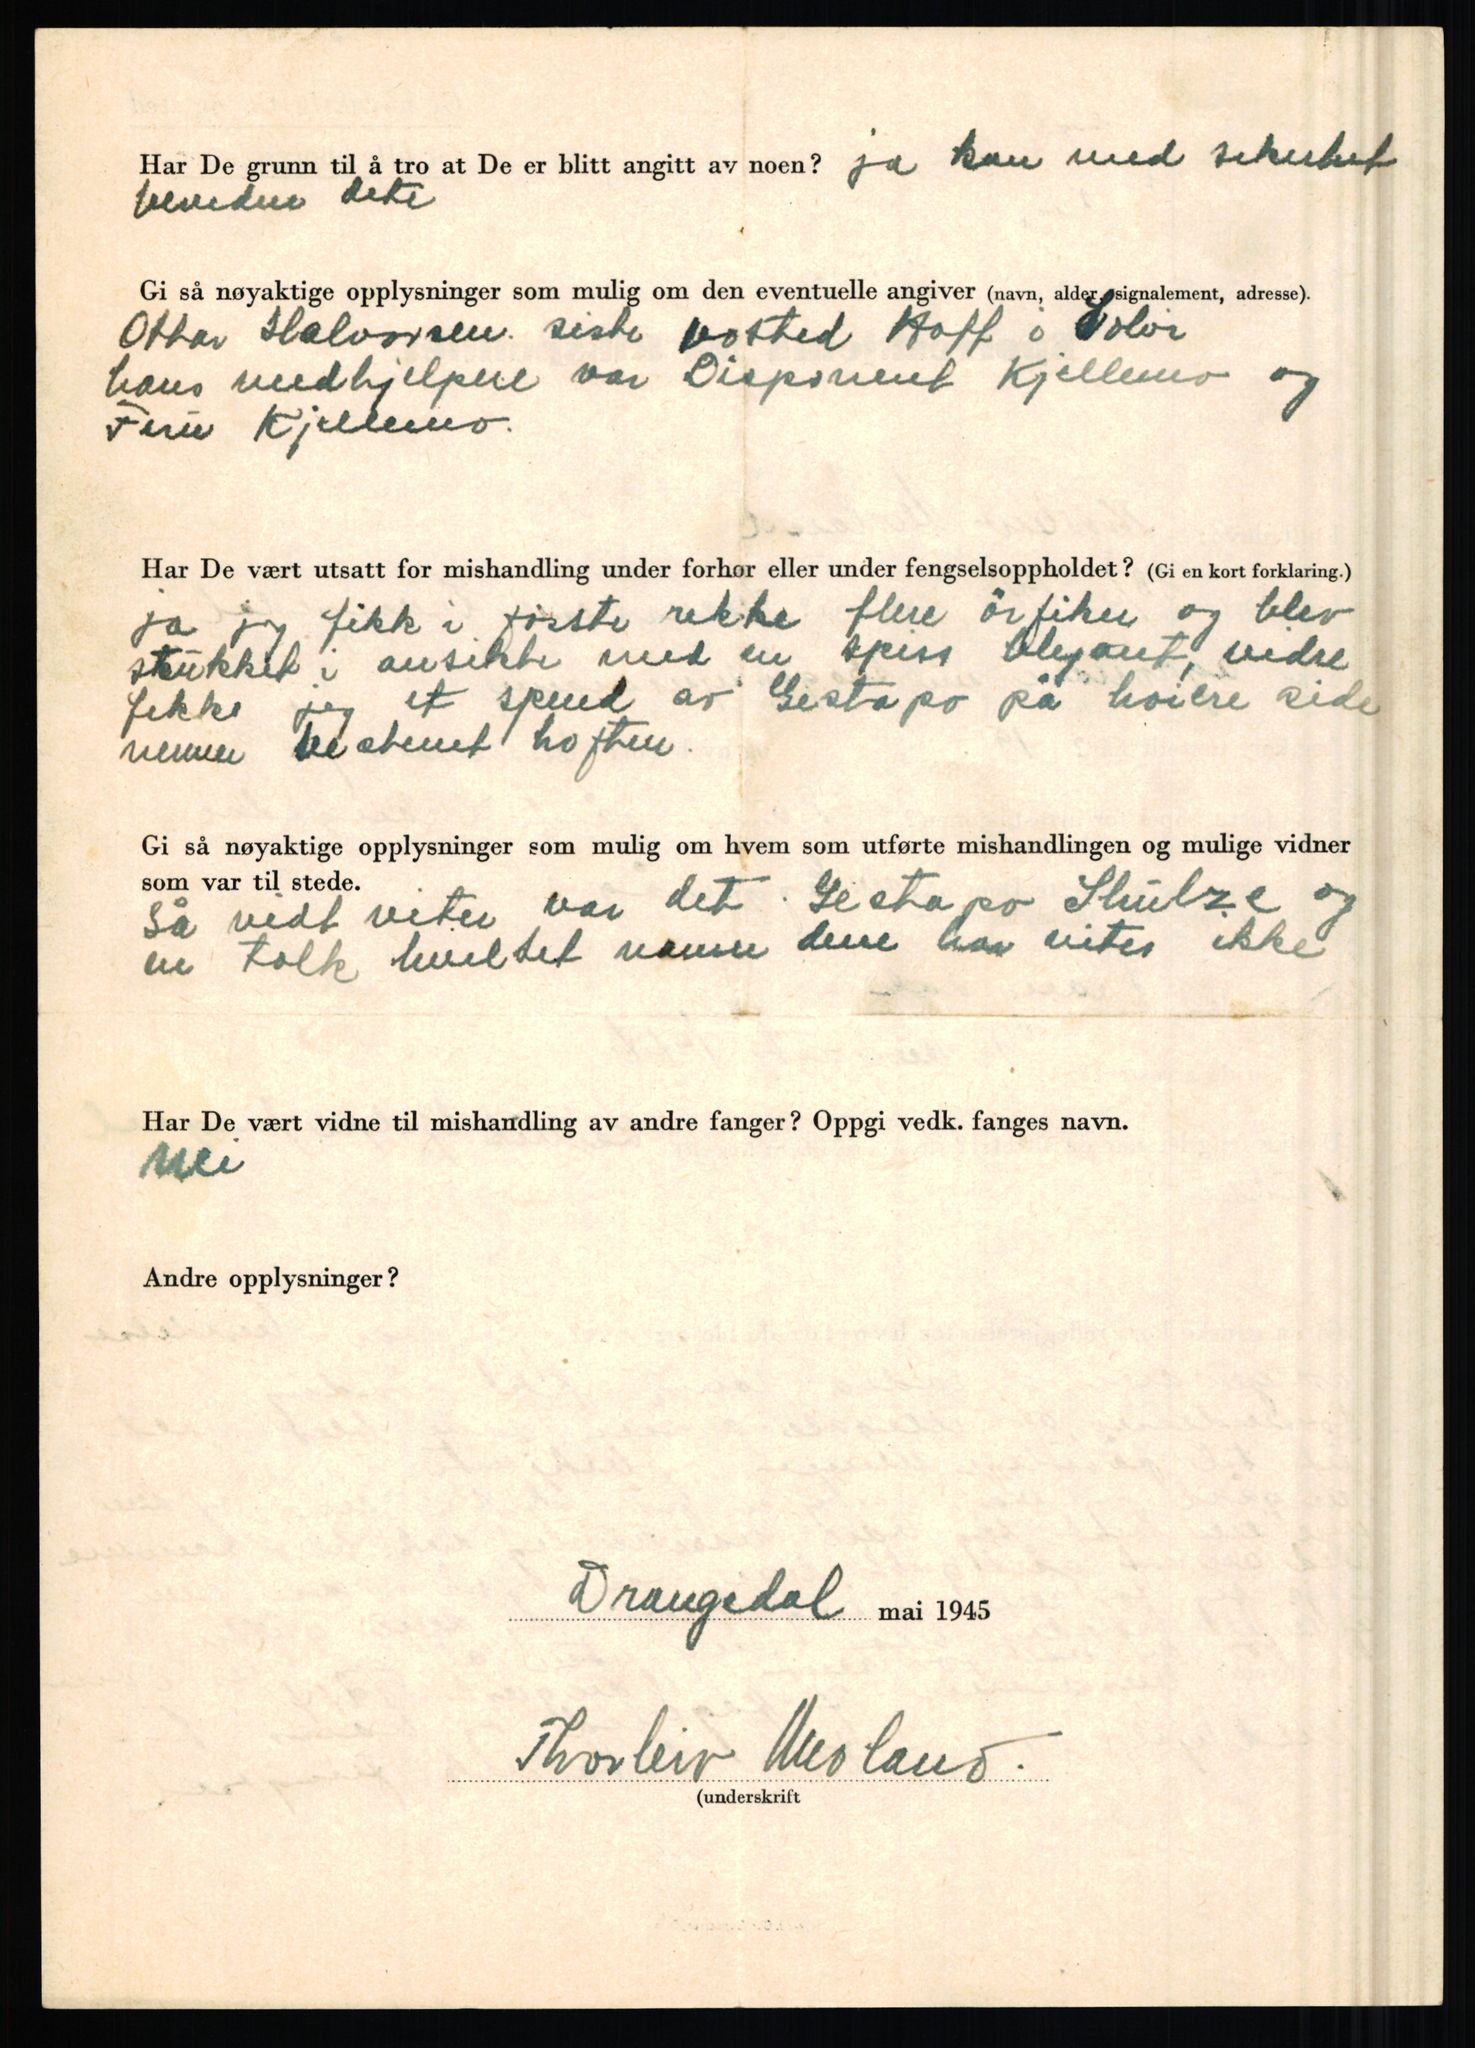 Har De grunn til å tro at De er blitt angitt av noen? ja kan med sikerhet
bevidne dete
Gi så nøyaktige opplysninger som mulig om den eventuelle angiver (navn, alder, signalement, adresse).
Ottar Halvorsen. siste bosted Hoff i Solør
hans medhjelpere var Disponent Kjellemo og
Frue Kjellemo.
Har De vært utsatt for mishandling under forhør eller under fengselsoppholdet? (Gi en kort forklaring.)
ja jeg fikk i første rekke flere örfiker og blev
stukket i ansikte med en spiss blyant, vidre
fikke jeg et spend av Gestapo på høiere side
nemmer bestemt hoften.
Gi så nøyaktige opplysninger som mulig om hvem som utførte mishandlingen og mulige vidner
som var til stede.
Så vidt viter var det Gestapo Shulze og
en tolk hvilket navn dene har vites ikke
Har De vært vidne til mishandling av andre fanger? Oppgi vedk. fanges navn.
Nei
Andre opplysninger?
Drangedal mai 1945
Thorleiv Moland.
(underskrift